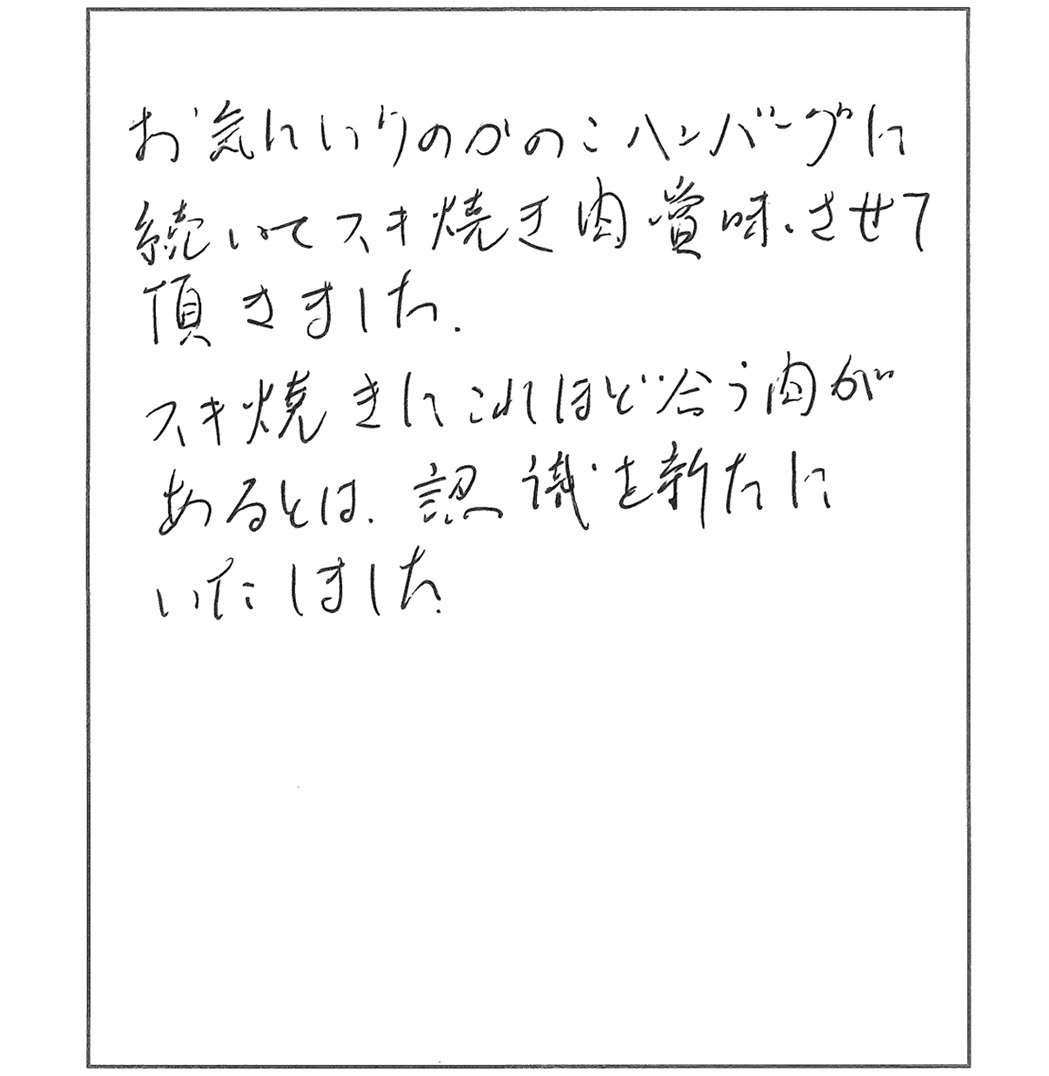 お気にいりのかのこハンバーグに
続いてスキ焼き肉賞味させて
頂きました.
スキ焼きにこれほど合う肉が
あるとは.認識を新たに
いたしました.